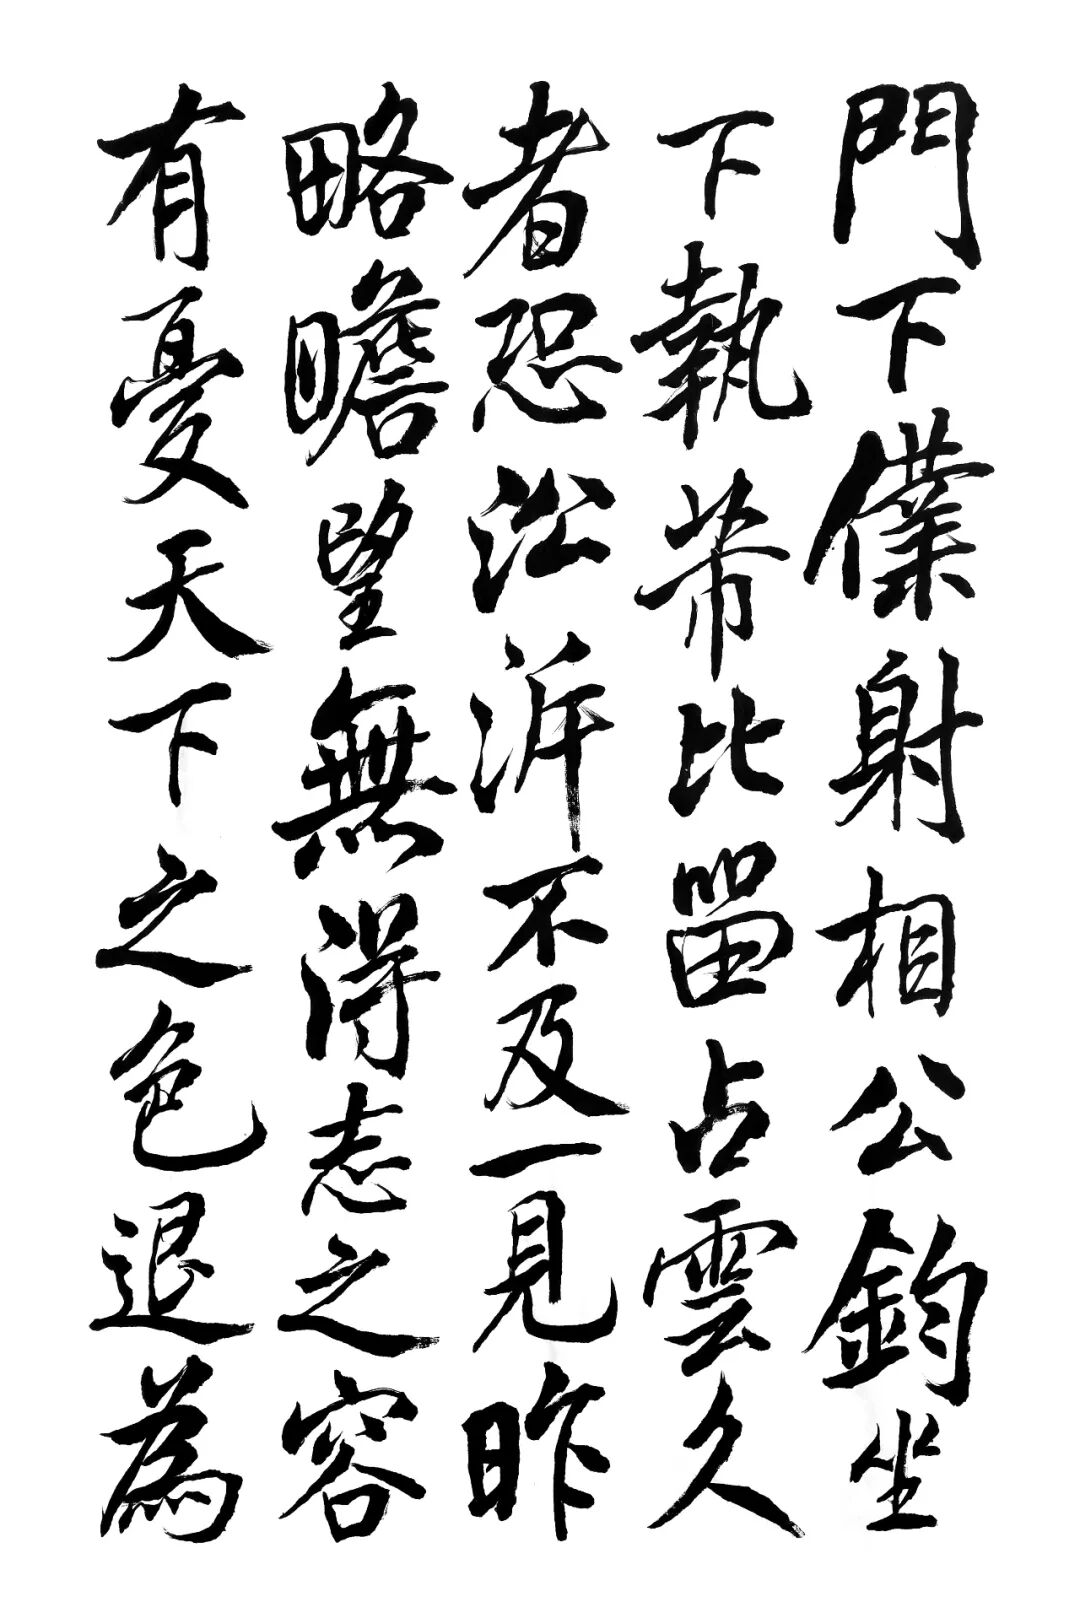 門下僕射相公鈞坐
下執幣比留占雲久
者恐㳂泝不及一見昨
略瞻望無得志之容
有憂天下之色退為